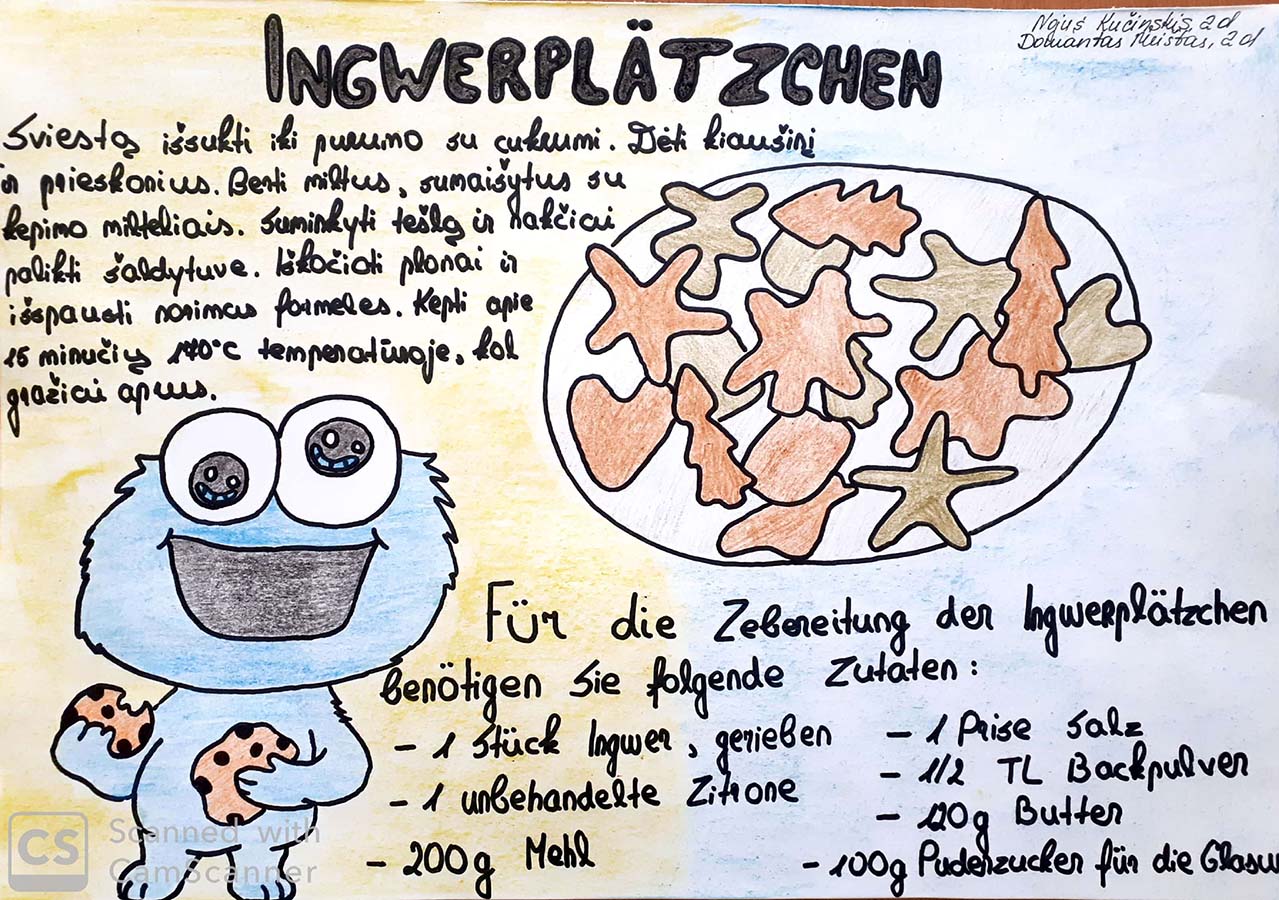 INGWERPLÄTZCHEN
Nojus Kučinskis, 2d
Domantas Meistas, 2d
Sviestą išsukti iki purumo su cukrumi. Dėti kiaušinį
ir prieskonius. Berti miltus, sumaišytus su
kepimo milteliais. Suminkyti tešlą ir nakčiai
palikti šaldytuve. Iškočioti plonai ir
išspausti norimas formeles. Kepti apie
15 minučių 170°C temperatūroje, kol
gražiai aprus.
Für die Zebereitung der Ingwerplätzchen
benötigen Sie folgende Zutaten:
- 1 Stück Ingwer, gerieben
- 1 unbehandelte Zitrone
- 200g Mehl
- 1 Prise Salz
- 1/2 TL Backpulver
- 120g Butter
- 100g Puderzucker für die Glasu
CS Scanned with
CamScanner